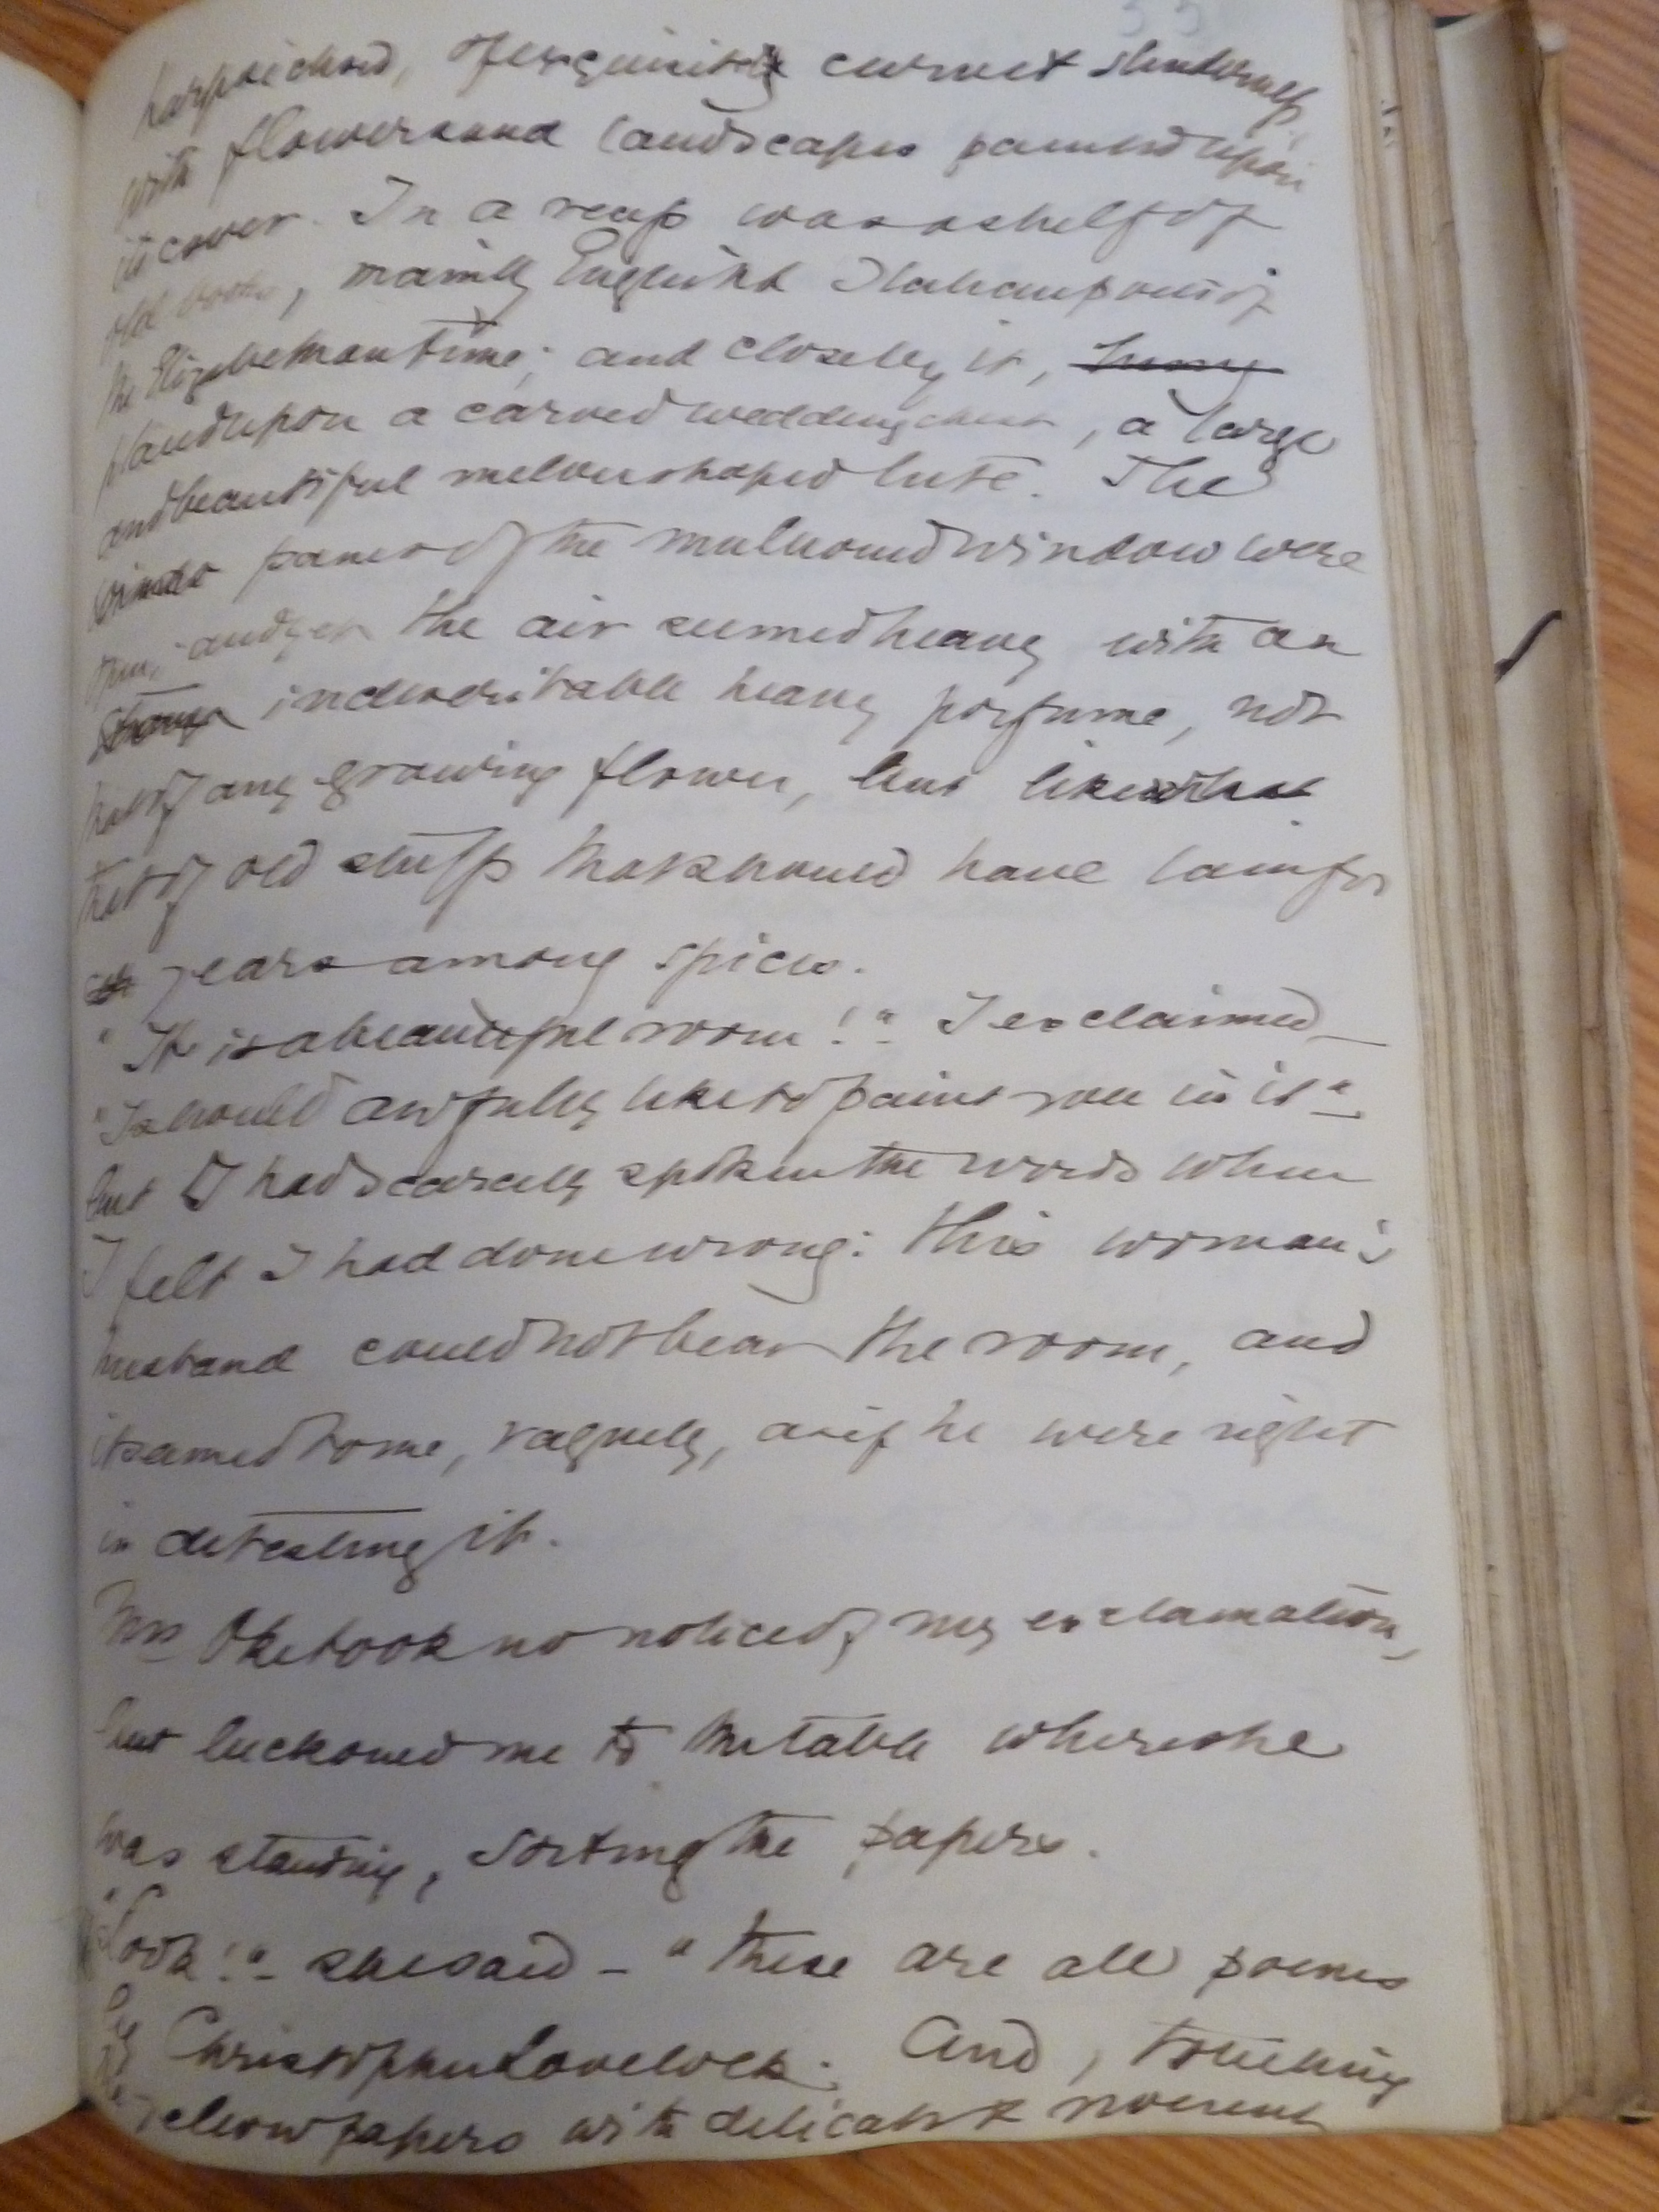 harpsichord, of exquisite curve & slenderness
with flowers and landscapes painted upon
its cover. In a recess was a shelf of
old books, mainly English & Italian poets of
the Elizabethan time; and close by it,
placed upon a carved wedding chest, a large
and beautiful melon shaped lute. The
panes of the mullioned window were
open, and yet the air seemed heavy with an
indescribable heavy perfume, not
that of any growing flower, but like that
that of old stuffs that should have lain for
years among spices.
"It is a beautiful room!" I exclaimed_
"I should awfully like to paint you in it"_
but I had scarcely spoken the words when
I felt I had done wrong: this woman's
husband could not bear the room, and
it seemed to me, vaguely, as if he were right
in detesting it.
Mrs Oke took no notice of my exclamation,
but beckoned me to the table where she
was standing, sorting the papers.
"Look!"_ she said _ "these are all poems
by Christopher Lovelock. And, touching
the yellow papers with delicate &